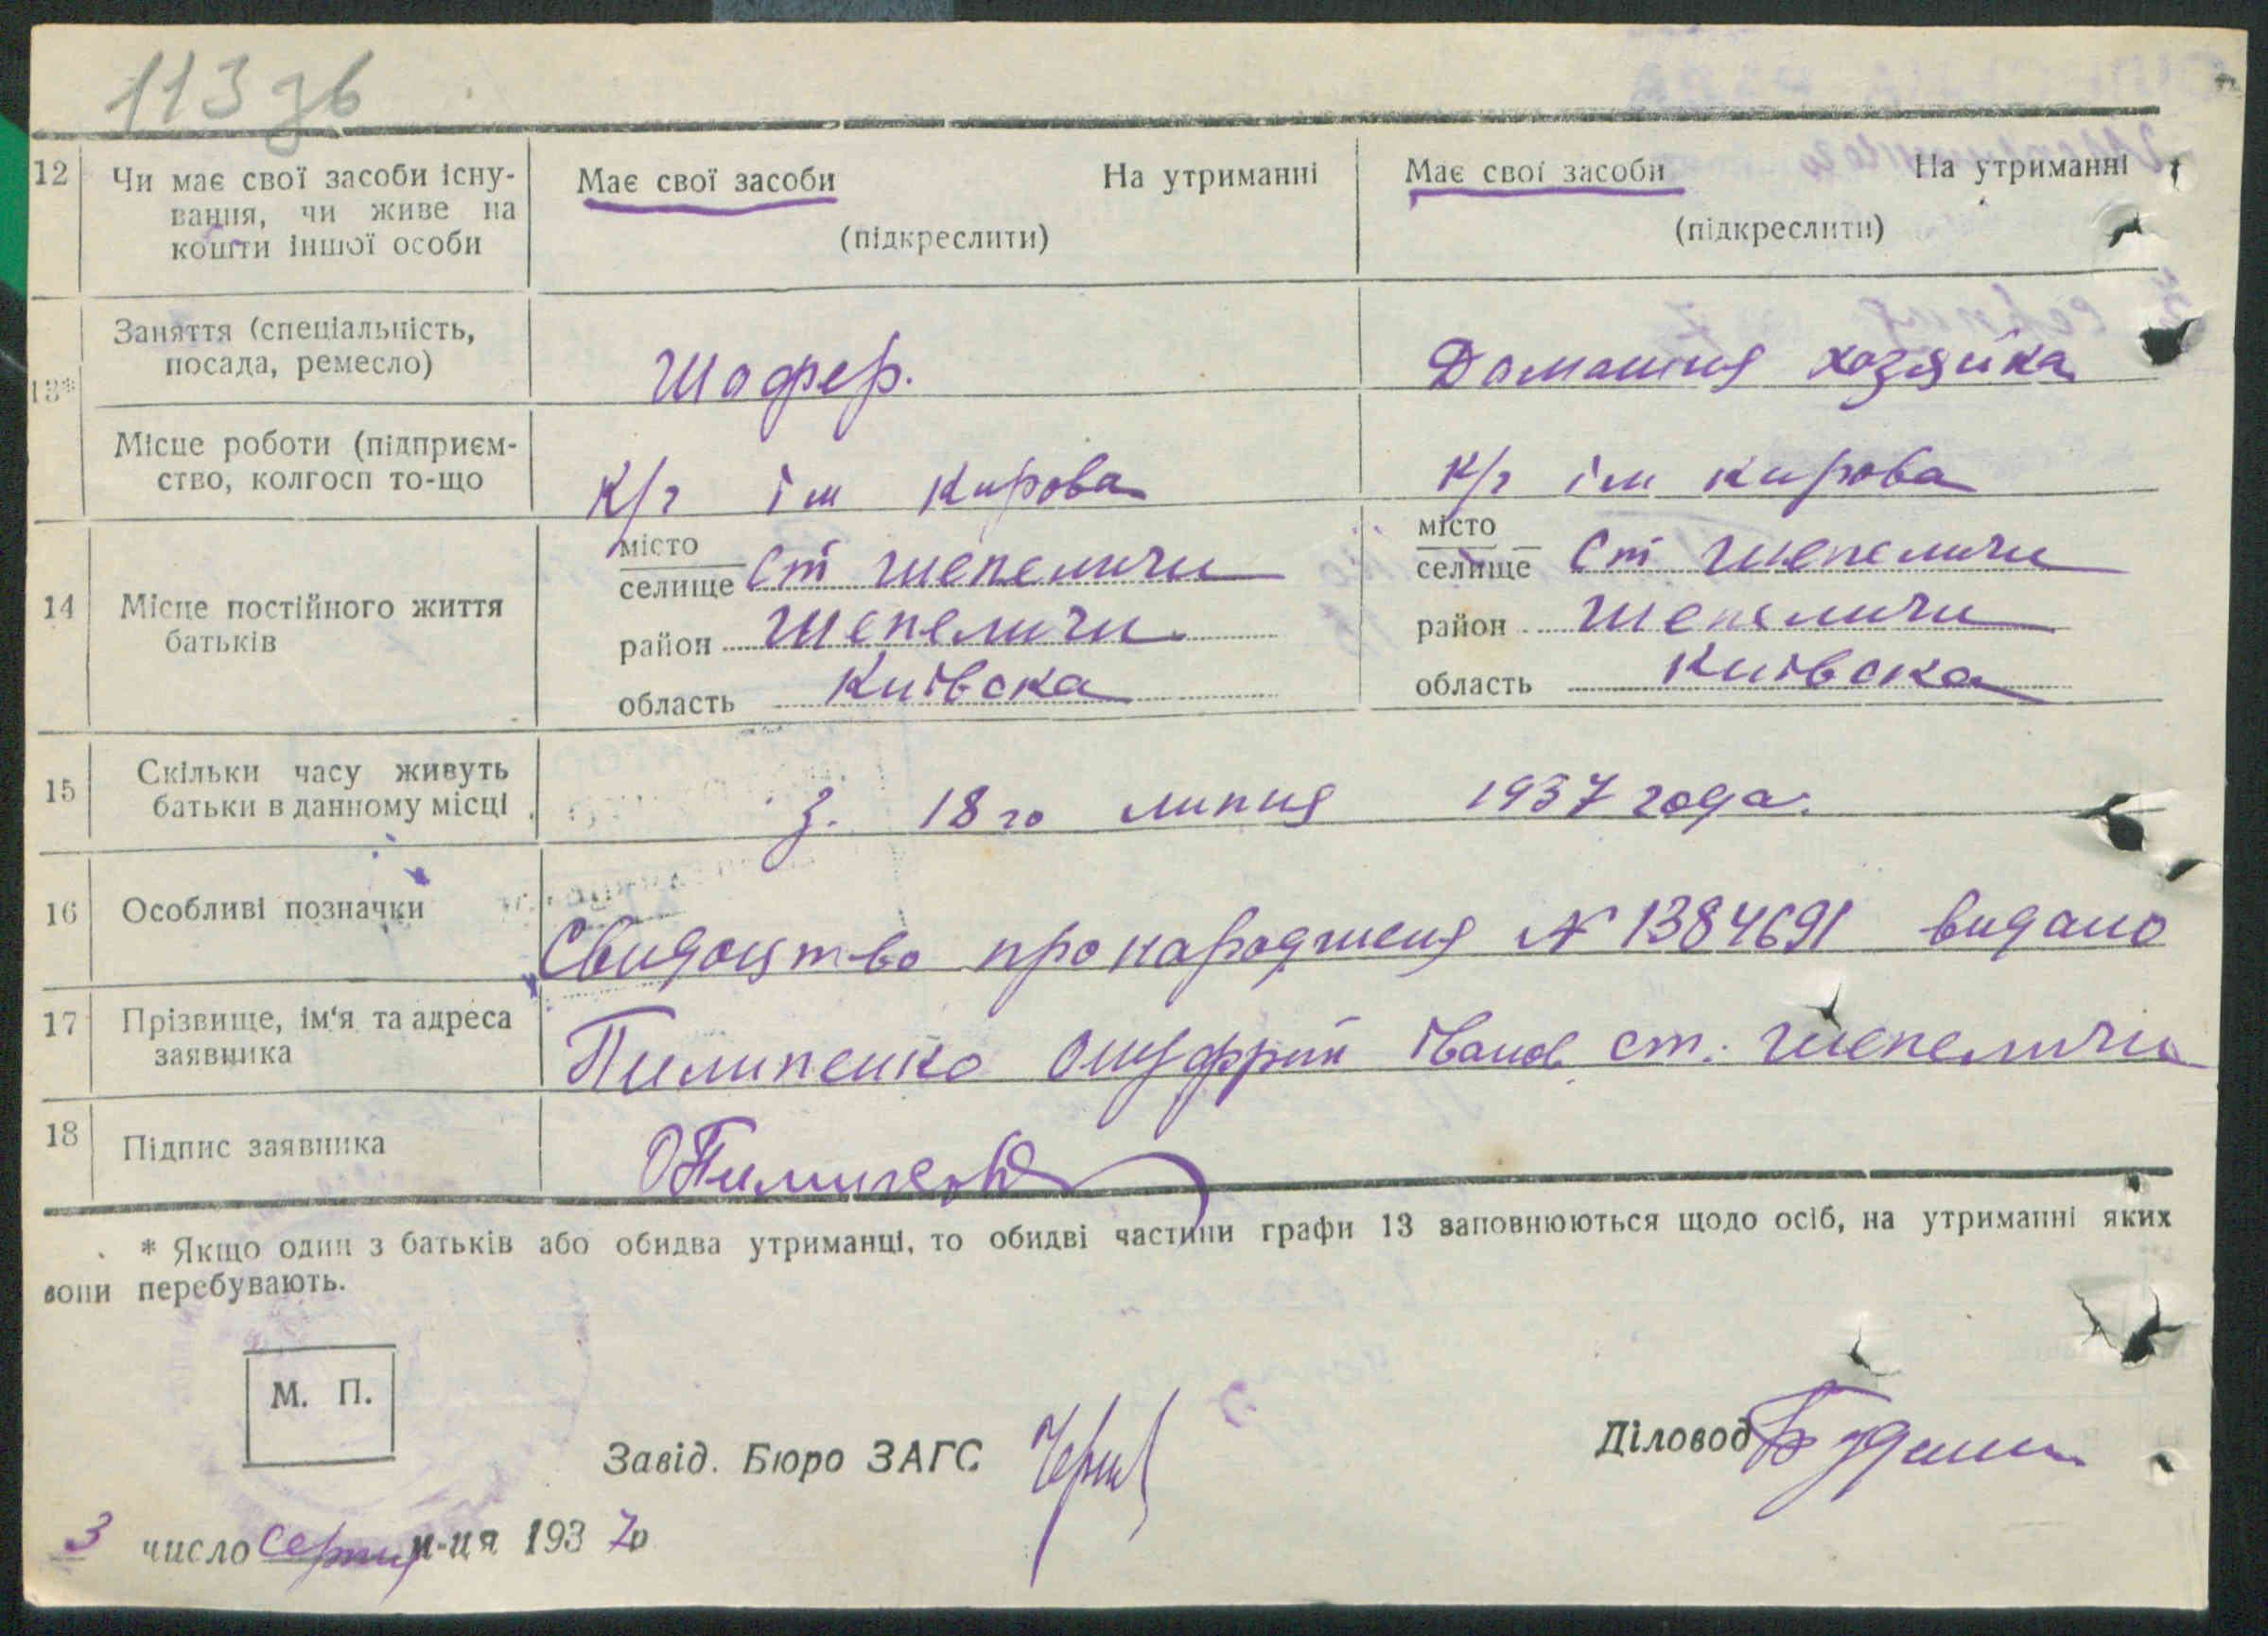 113 зв
12 Чи має свої засоби існу-
вання, чи живе на
кошти іншої особи
Має свої засоби На утриманні
(підкреслити)
Має свої засоби На утриманні
(підкреслити)
13*
Заняття (спеціальність,
посада, ремесло)
Шофер.
Домашня хозяйка
Місце роботи (підприєм-
ство, колгосп то-що
К/г ім Кирова
К/г ім Кирова
14 Місце постійного життя
батьків
місто
селище Ст Шепеличи
район Шепеличи
область Киівска
місто
селище Ст Шепеличи
район Шепеличи
область Киівска
15 Скільки часу живуть
батьки в данному місці
З. 18го липня 1937 года.
16 Особливі позначки
Свидоцтво про народженя № 1384691 видано
17 Прізвище, ім‘я та адреса
заявника
Пилипенко Онуфрий Іванов ст. Шепеличи
18 Підпис заявника
* Якщо один з батьків або обидва утриманці, то обидві частини графи 13 заповнюються щодо осіб, на утриманні яких
вони перебувають.
М. П.
Завід. Бюро ЗАГС
Діловод
3 число Серпня м-ця 1937р